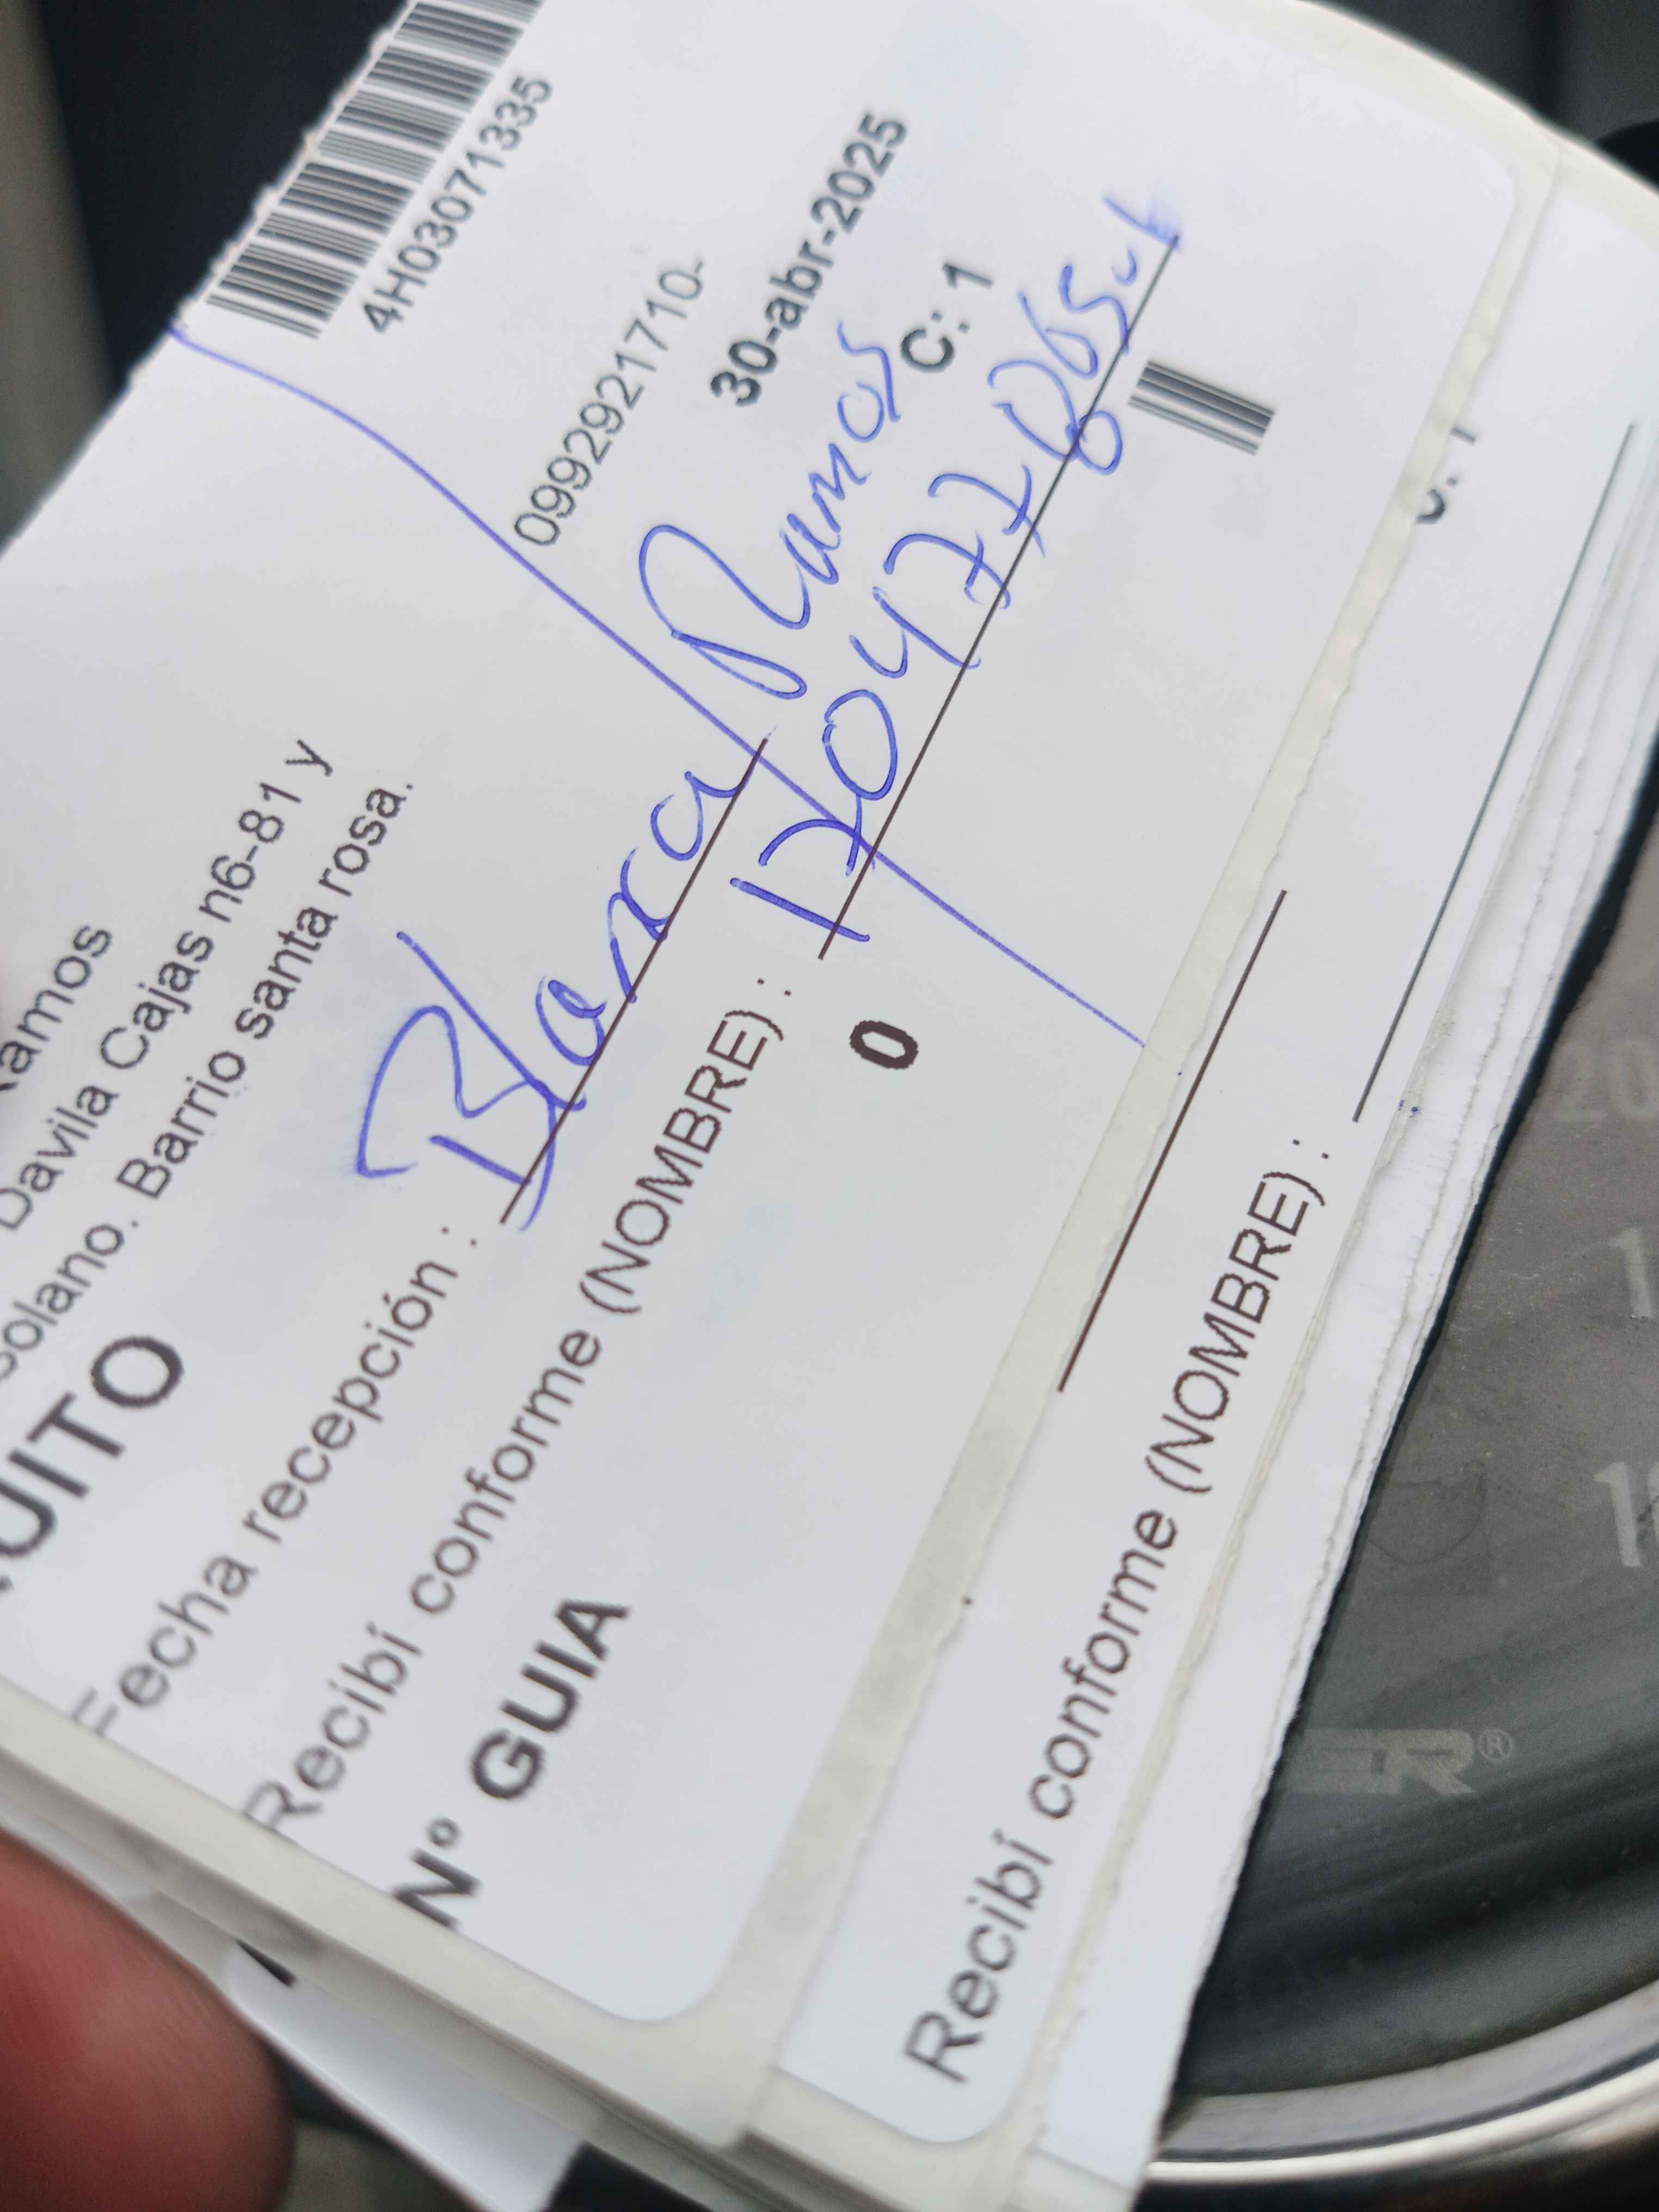 4H03071335
amos
Davila Cajas n6-81 y
solano. Barrio santa rosa.
0992921710-
UITO
30-abr-2025
Fecha recepción :
Blanca Ramos
C: 1
Recibí conforme (NOMBRE) :
Nº GUIA
0
Recibí conforme (NOMBRE) :